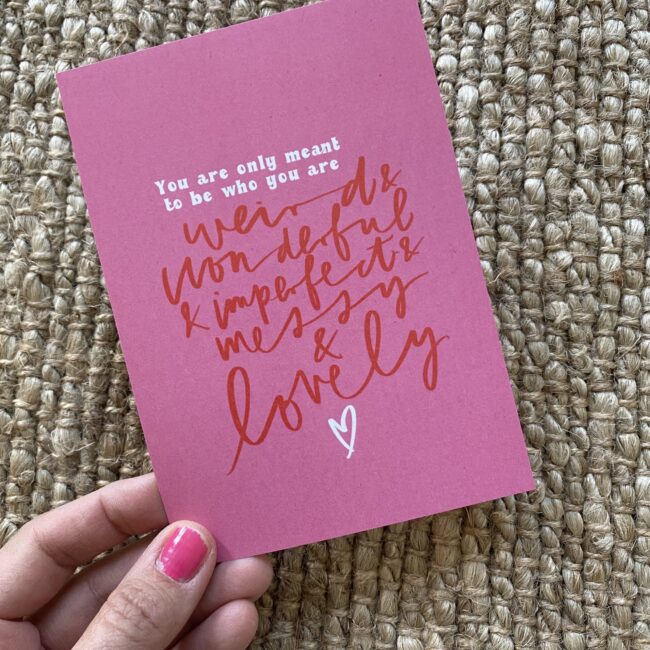 You are only meant
to be who you are
weird &
wonderful
& imperfect &
messy
&
lovely